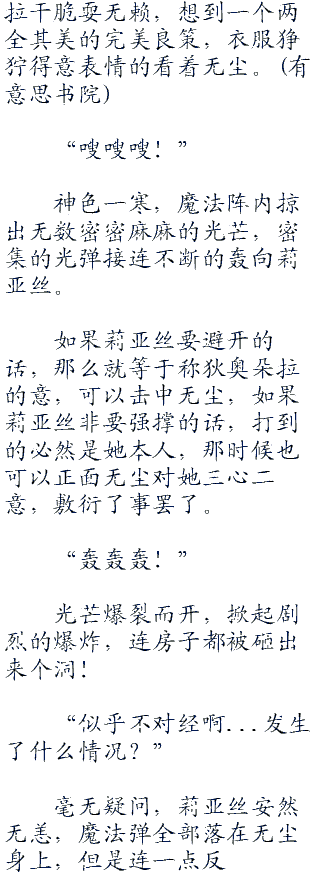 拉干脆耍无赖，想到一个两
全其美的完美良策，衣服狰
狞得意表情的看着无尘。(有
意思书院)
“嗖嗖嗖！”
神色一寒，魔法阵内掠
出无数密密麻麻的光芒，密
集的光弹接连不断的轰向莉
亚丝。
如果莉亚丝要避开的
话，那么就等于称狄奥朵拉
的意，可以击中无尘，如果
莉亚丝非要强撑的话，打到
的必然是她本人，那时候也
可以正面无尘对她三心二
意，敷衍了事罢了。
“轰轰轰！”
光芒爆裂而开，掀起剧
烈的爆炸，连房子都被砸出
来个洞！
“似乎不对经啊...发生
了什么情况？”
毫无疑问，莉亚丝安然
无恙，魔法弹全部落在无尘
身上，但是连一点反